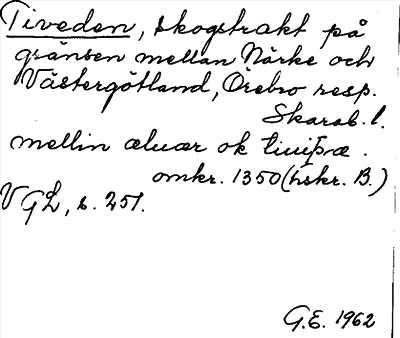 Tiveden, skogstrakt på
gränsen mellan Närke och
Västergötland, Örebro resp.
Skarab. l.
mellin æluær ok tiuiþæ.
omkr. 1350 (hskr. B.)
VGL, s. 251.
G.E. 1962